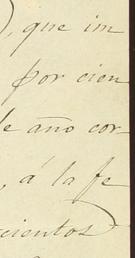 , que im
por cien
de año cor-
, á la fe
cientos